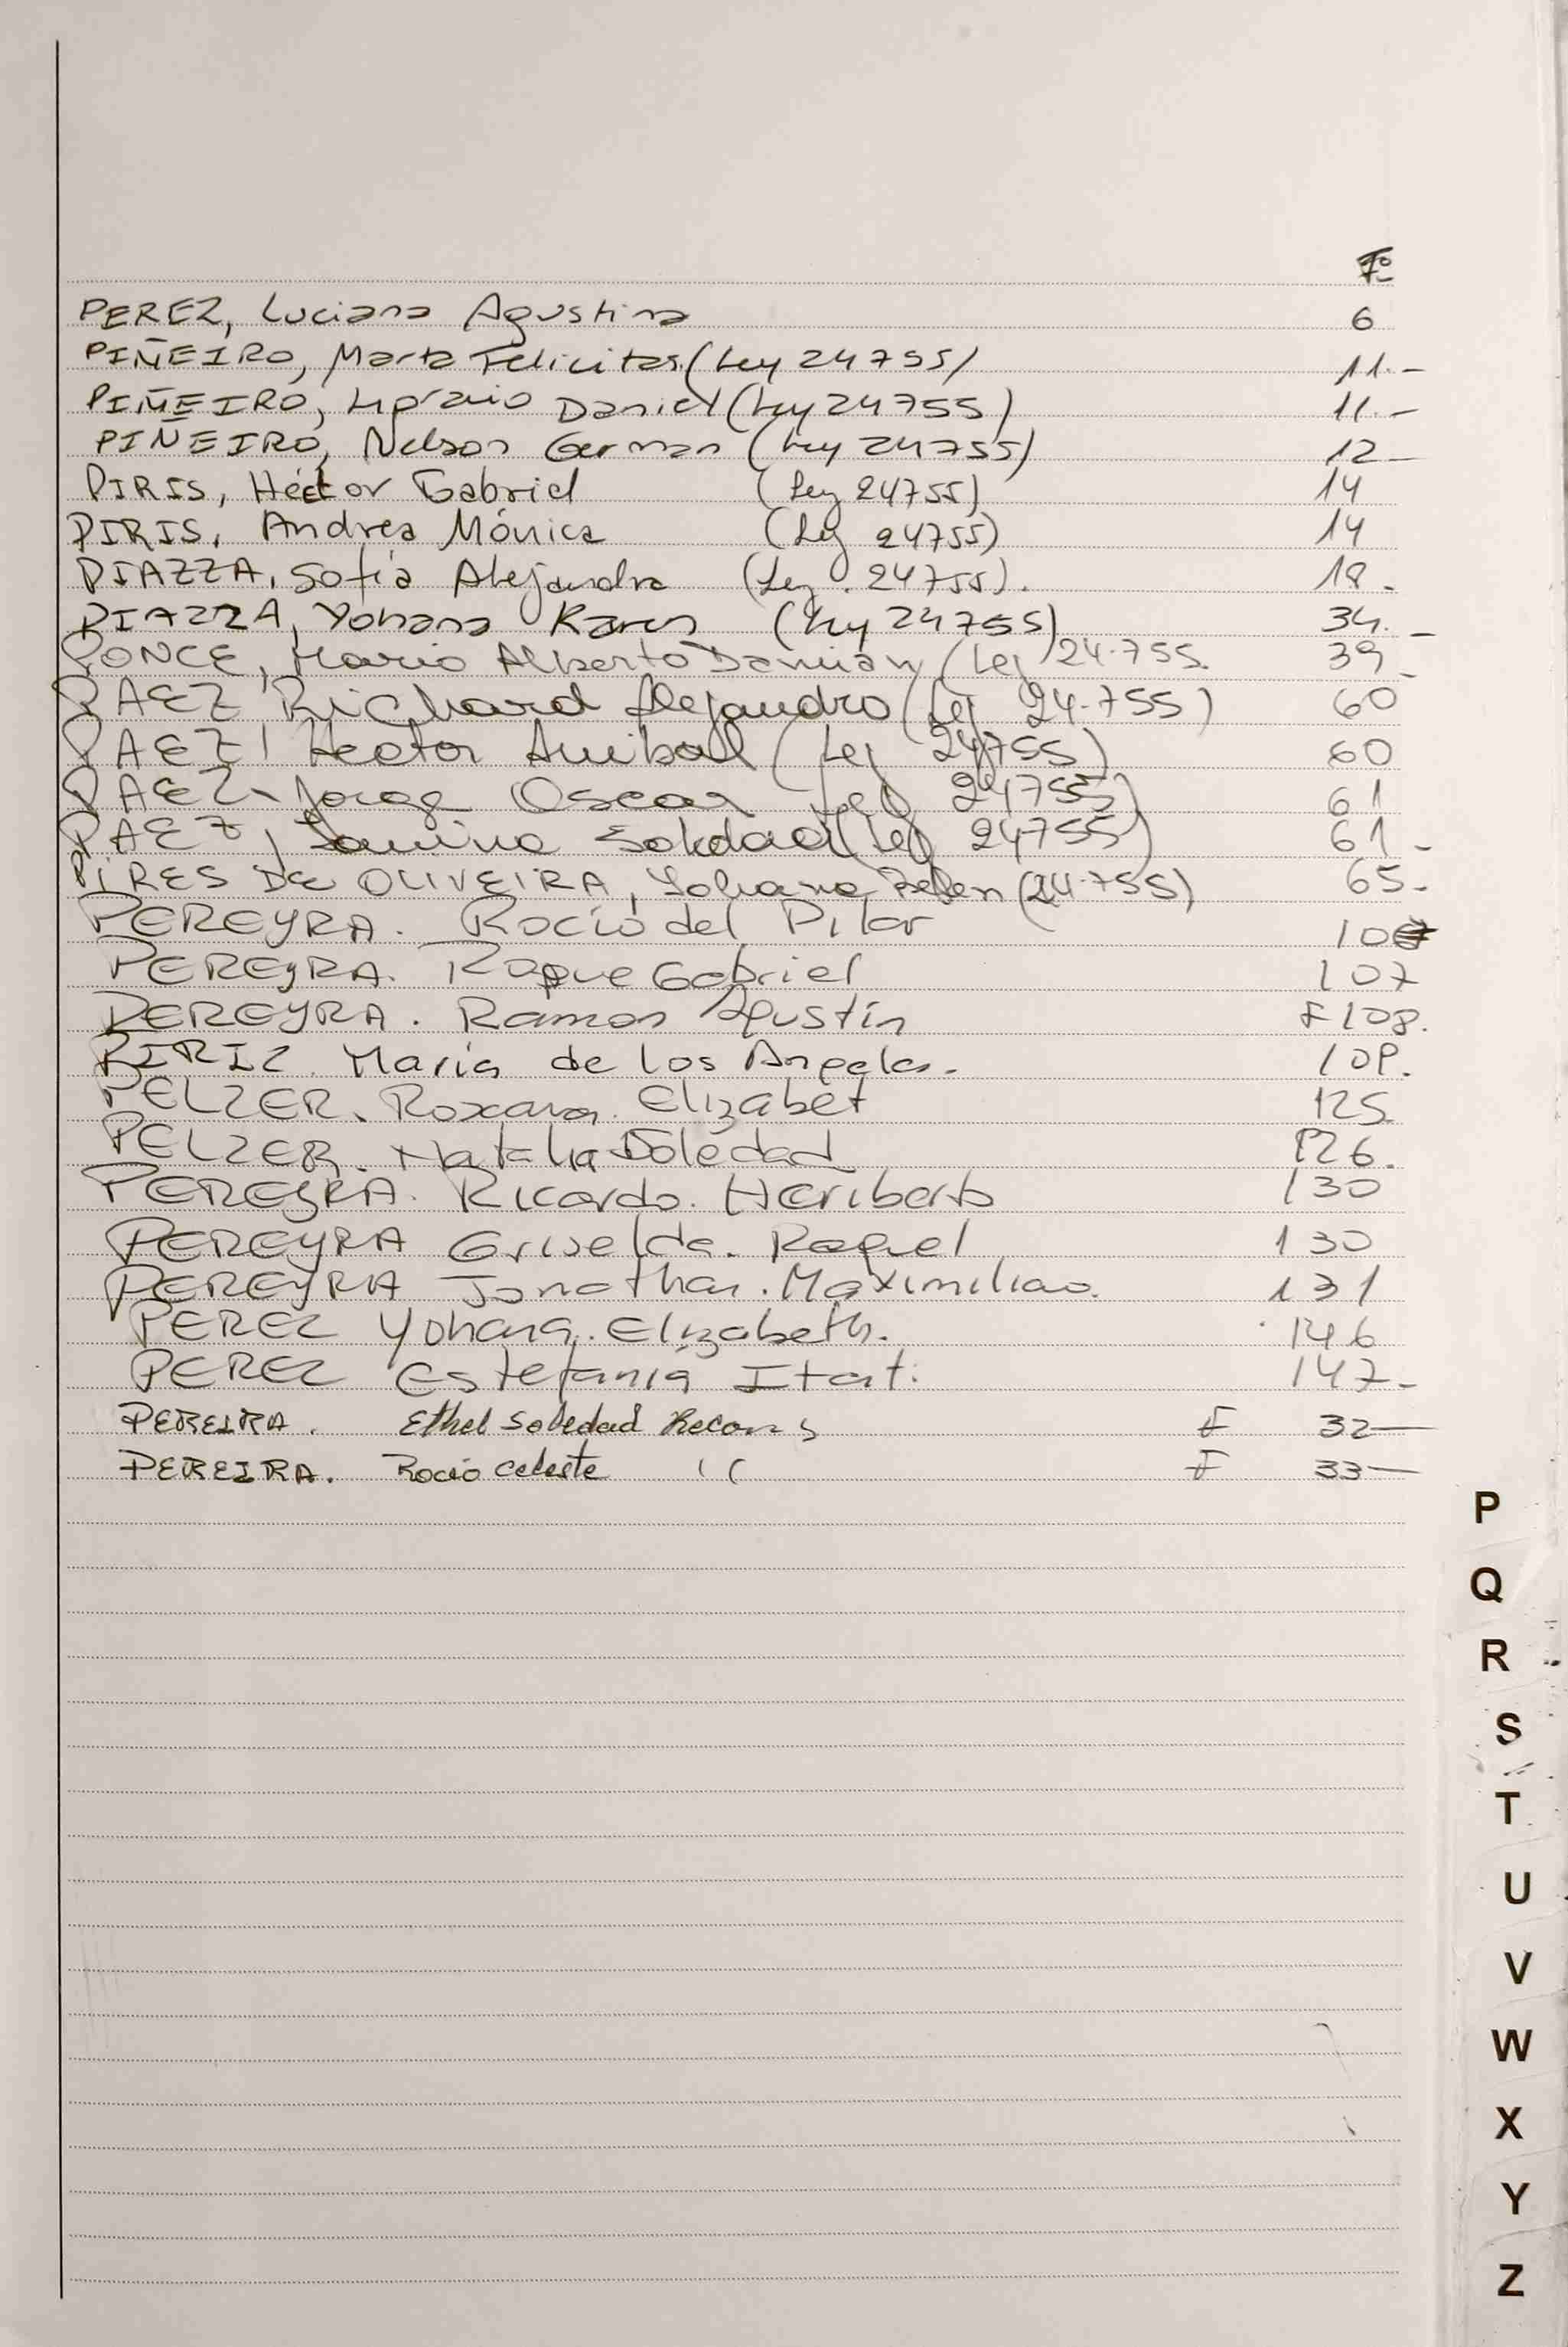 Fº
PEREZ, Luciana Agustina 6
PIÑEIRO, Marta Felicitas (Ley 24755) 11.-
PIÑEIRO, Daniel (Ley 24755) 11.-
PIÑEIRO, Nelson German (Ley 24755) 12-
PIRIS, Héctor Gabriel (Ley 24755) 14
PIRIS, Andrea Mónica (Ley 24755) 14
PIAZZA, Sofía Alejandra (Ley. 24755). 18.
PIAZZA, Yohana Karen (Ley 24755) 34.-
PONCE, Mario Alberto Damián (Ley 24.755. 39-
PAEZ, Richard Alejandro (Ley 24.755) 60
PAEZ, Hector Anibal (Ley 24755) 60
PAEZ, Jorge Oscar (Ley 24755) 61
PAEZ, Soledad (Ley 24755) 61-
PIRES DE OLIVEIRA, Yohana Belen (24.755) 65-
PEREYRA. Rocío del Pilar
PEREYRA. Roque Gabriel 107
PEREYRA. Ramon Agustín F 108.
PIRIZ. María de los Angeles. 109.
PELZER. Roxana. Elizabet 125
PELZER. Natalia Soledad 126.
PEREYRA. Ricardo. Heriberto 130
PEREYRA Griselda. Raquel 130
PEREYRA Jonathan. Maximiliano. 131
PEREZ Yohana. Elizabeth. 146
PEREZ Estefanía Itatí. 147-
PEREIRA. Ethel Soledad F 32-
PEREIRA. Rocio Celeste " F 33-
P
Q
R
S
T
U
V
W
X
Y
Z